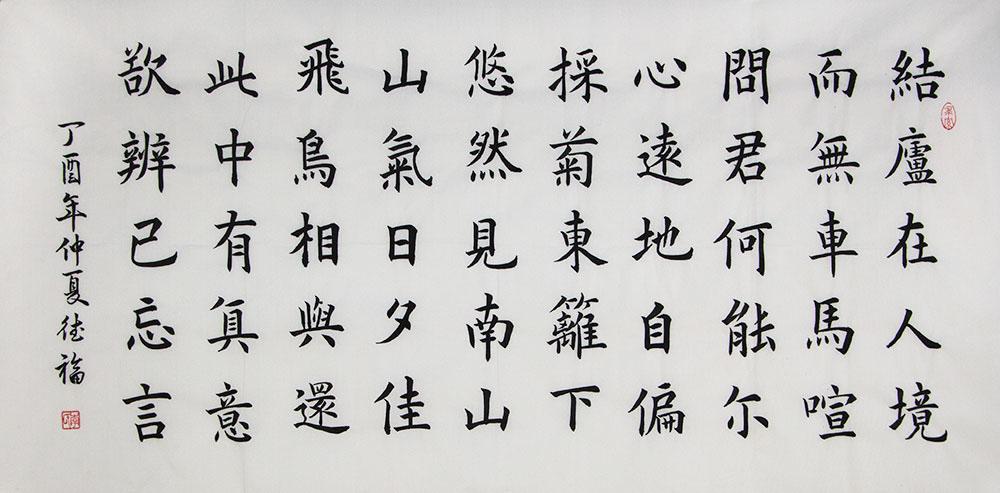 結廬在人境
而無車馬喧
問君何能尔
心遠地自偏
採菊東籬下
悠然見南山
山氣日夕佳
飛鳥相與還
此中有真意
欲辨已忘言
丁酉年仲夏德福